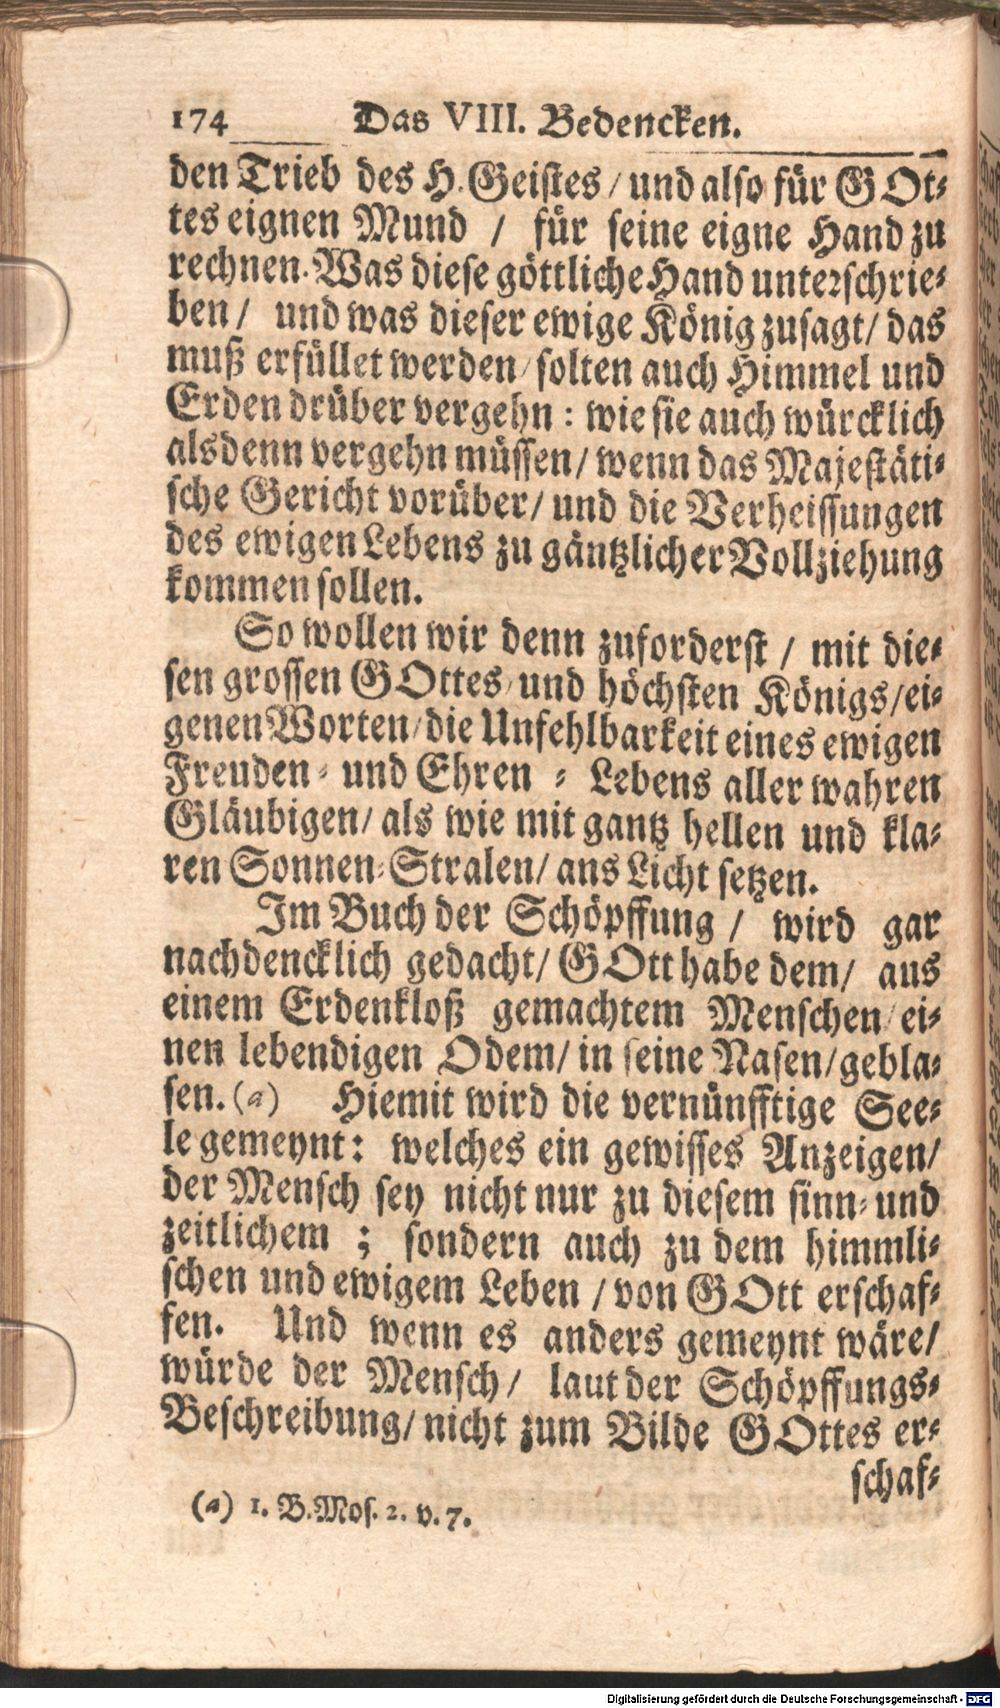 174 Das VIII. Bedencken.
den Trieb des H. Geistes / und also für GOt-
tes eignen Mund / für seine eigne Hand zu
rechnen. Was diese göttliche Hand unterschrie-
ben / und was dieser ewige König zusagt / das
muß erfüllet werden / solten auch Himmel und
Erden drüber vergehn : wie sie auch würcklich
alsdenn vergehn müssen / wenn das Majestäti-
sche Gericht vorüber / und die Verheissungen
des ewigen Lebens zu gäntzlicher Vollziehung
kommen sollen.
So wollen wir denn zuforderst / mit die-
sen grossen GOttes / und höchsten Königs / ei-
genen Worten / die Unfehlbarkeit eines ewigen
Freuden - und Ehren - Lebens aller wahren
Gläubigen / als wie mit gantz hellen und kla-
ren Sonnen-Stralen / ans Licht setzen.
Im Buch der Schöpffung / wird gar
nachdencklich gedacht / GOtt habe dem / aus
einem Erdenkloß gemachtem Menschen / ei-
nen lebendigen Odem / in seine Nasen / gebla-
sen. (a) Hiemit wird die vernünfftige See-
le gemeynt : welches ein gewisses Anzeigen /
der Mensch sey nicht nur zu diesem sinn- und
zeitlichem ; sondern auch zu dem himmli-
schen und ewigem Leben / von GOtt erschaf-
fen. Und wenn es anders gemeynt wäre /
würde der Mensch / laut der Schöpffungs-
Beschreibung / nicht zum Bilde GOttes er-
schaf-
(a) 1. B. Mos. 2. v. 7.
Digitalisierung gefördert durch die Deutsche Forschungsgemeinschaft - DFG